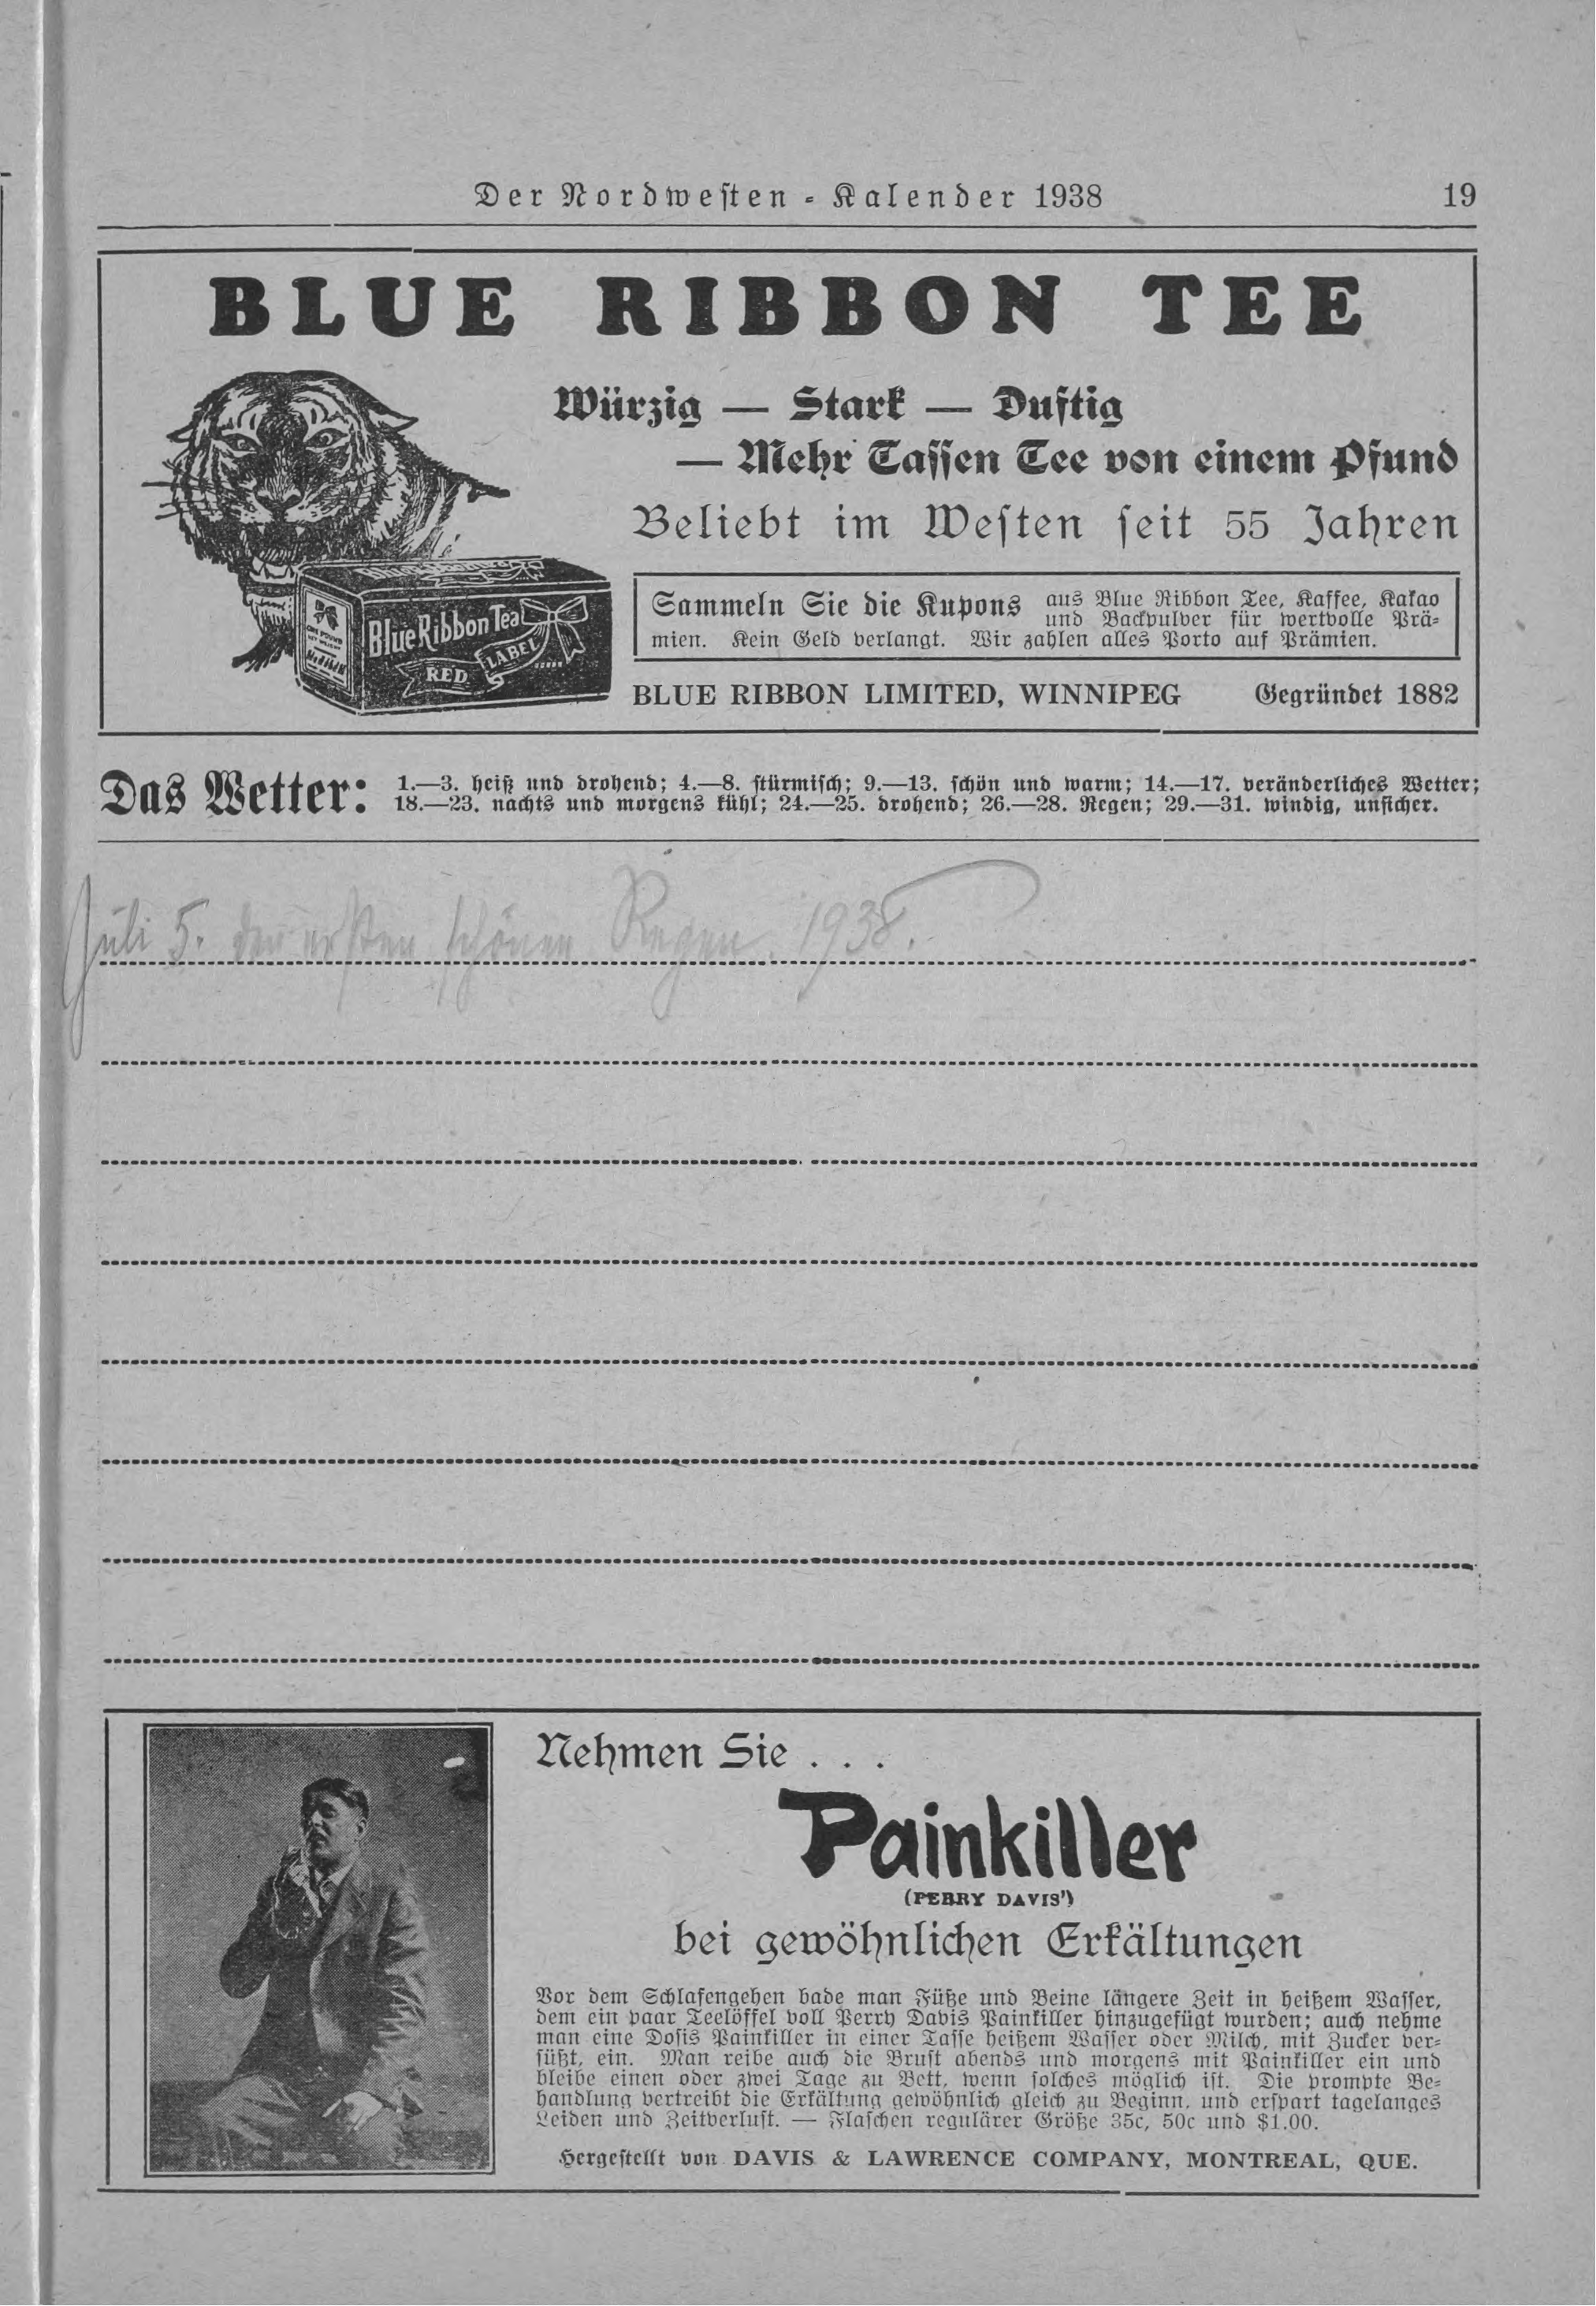 Der Nordwesten - Kalender 1938 19
BLUE RIBBON TEE
Würzig — Stark — Duftig
— Mehr Tassen Tee von einem Pfund
Beliebt im Westen seit 55 Jahren
Sammeln Sie die Kupons aus Blue Ribbon Tee, Kaffee, Kakao
und Backpulver für wertvolle Prä-
mien. Kein Geld verlangt. Wir zahlen alles Porto auf Prämien.
Blue Ribbon Tea
RED LABEL
BLUE RIBBON LIMITED, WINNIPEG Gegründet 1882
Das Wetter: 1.—3. heiß und drohend; 4.—8. stürmisch; 9.—13. schön und warm; 14.—17. veränderliches Wetter;
18.—23. nachts und morgens kühl; 24.—25. drohend; 26.—28. Regen; 29.—31. windig, unsicher.
Juli 5. den ersten schönen Regen. 1938.
Nehmen Sie . . .
Painkiller
(PERRY DAVIS')
bei gewöhnlichen Erkältungen
Vor dem Schlafengehen bade man Füße und Beine längere Zeit in heißem Wasser,
dem ein paar Teelöffel voll Perry Davis Painkiller hinzugefügt wurden; auch nehme
man eine Dosis Painkiller in einer Tasse heißem Wasser oder Milch, mit Zucker ver-
süßt, ein. Man reibe auch die Brust abends und morgens mit Painkiller ein und
bleibe einen oder zwei Tage zu Bett, wenn solches möglich ist. Die prompte Be-
handlung vertreibt die Erkältung gewöhnlich gleich zu Beginn, und erspart tagelanges
Leiden und Zeitverlust. — Flaschen regulärer Größe 35c, 50c und $1.00.
Hergestellt von DAVIS & LAWRENCE COMPANY, MONTREAL, QUE.